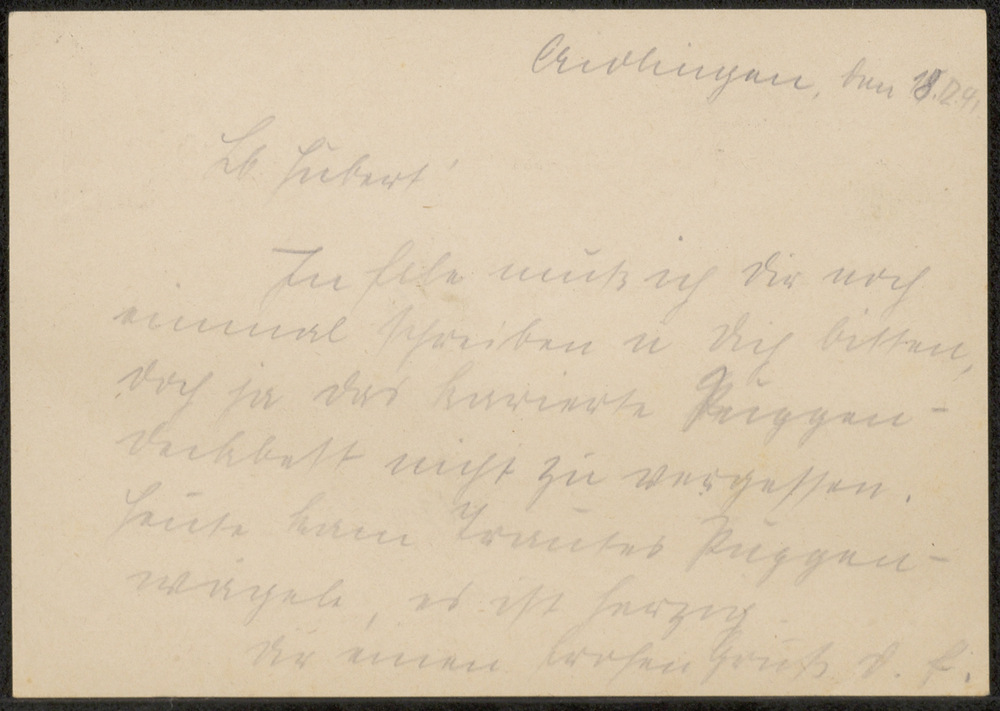 Aidlingen, den 18.12.41
Lb. Hubert!
In Eile muß ich Dir noch
einmal schreiben u Dich bitten,
doch ja das karierte Puppen-
deckbett nicht zu vergessen.
Heute kam Trautes Puppen-
wägele, es ist herzig
Dir einen frohen Gruß D. E.